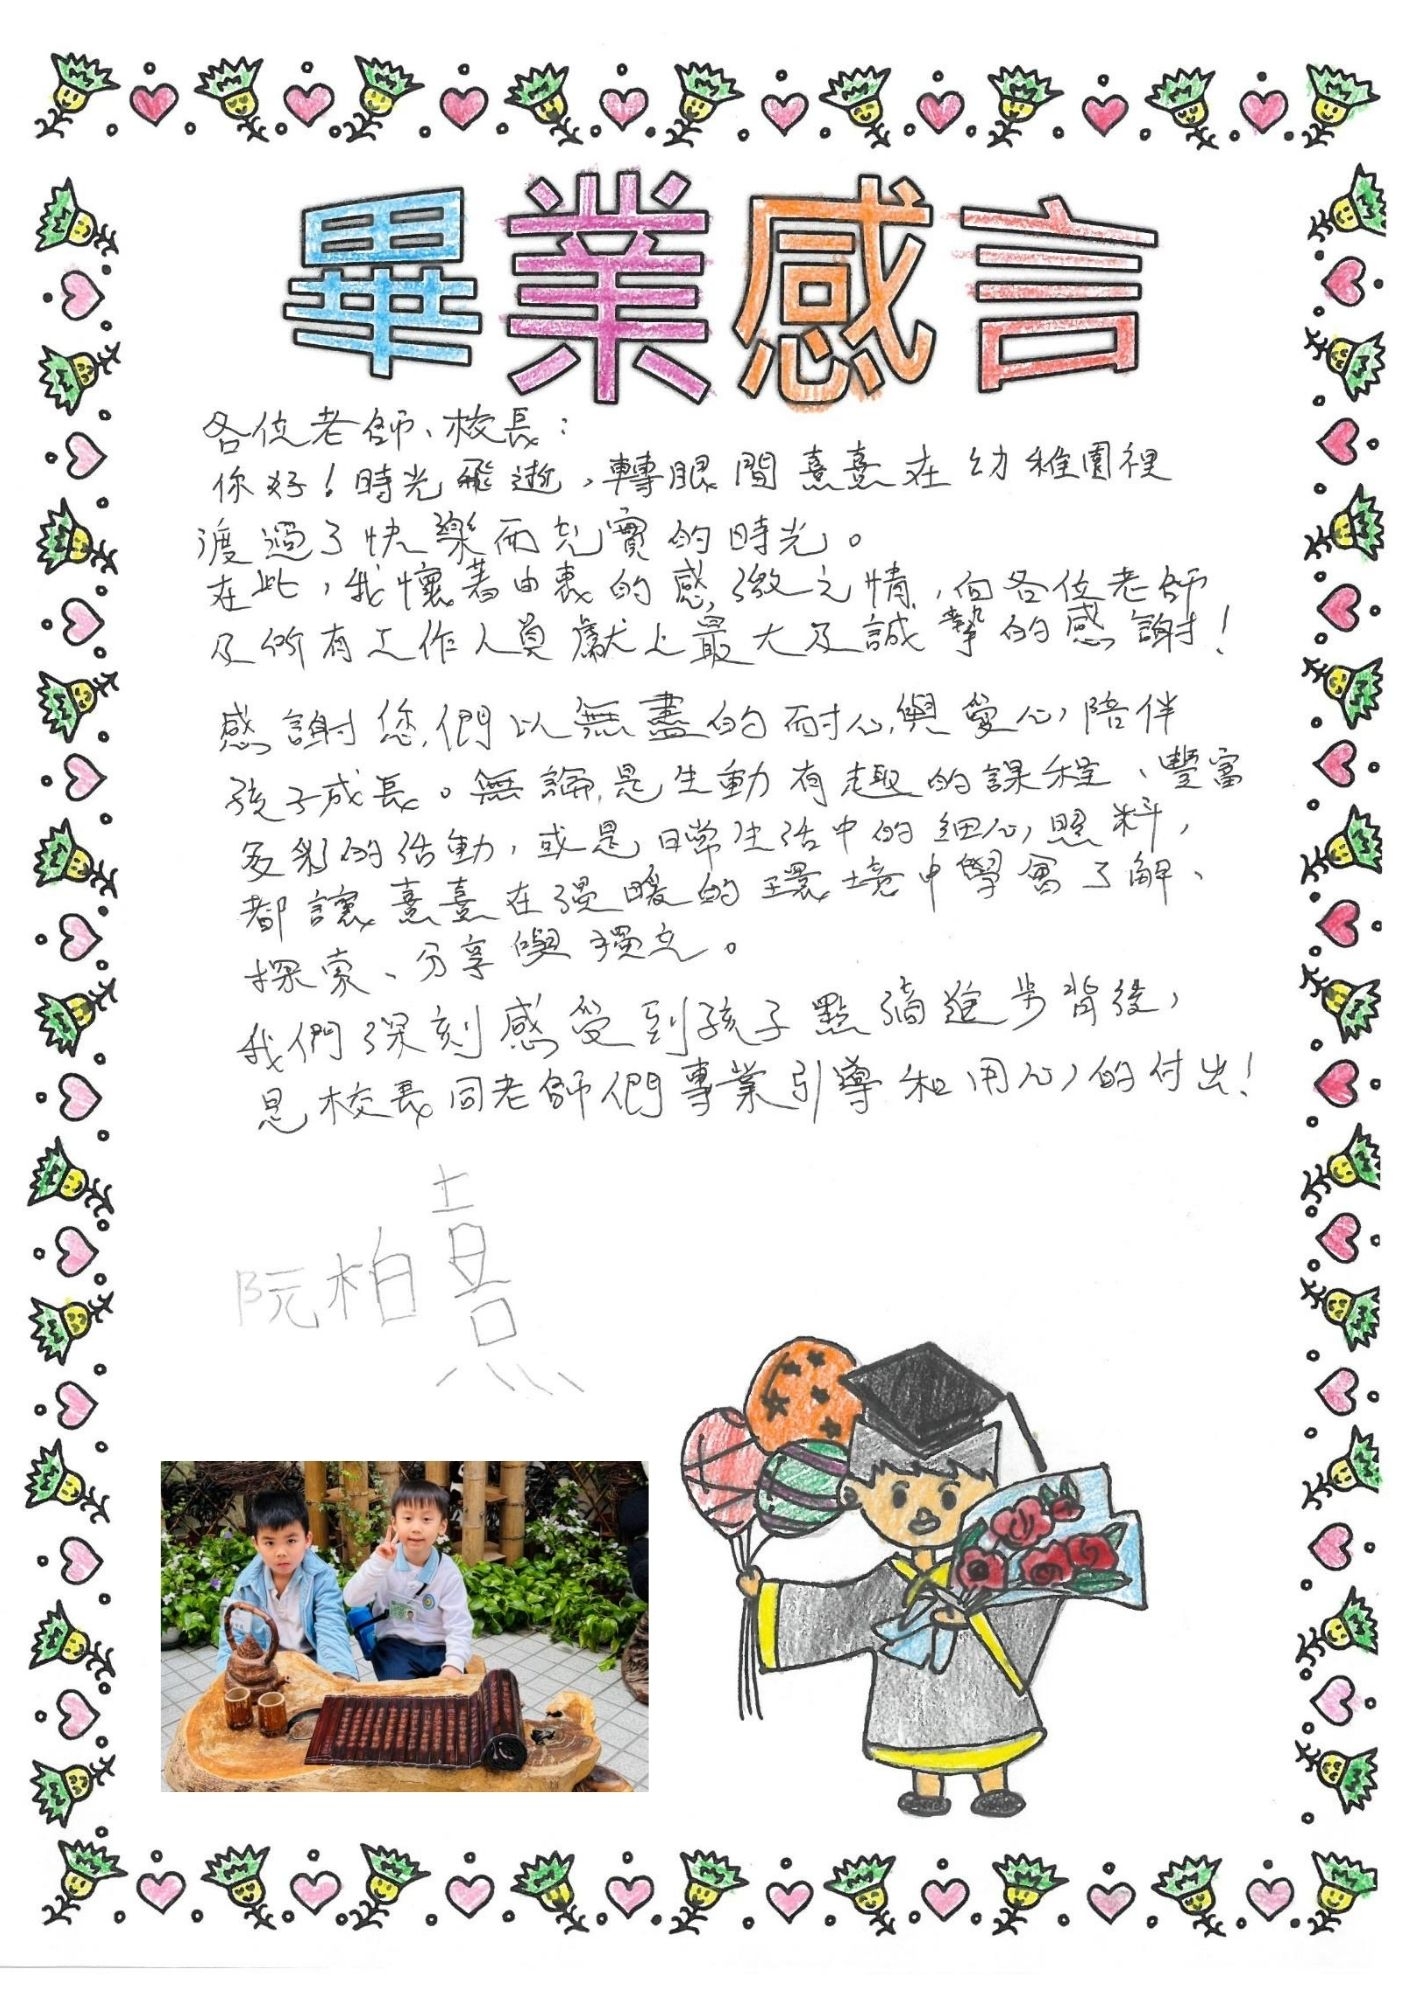 畢業感言
各位老師、校長：
你好！時光飛逝，轉眼間熹熹在幼稚園裡
渡過了快樂而充實的時光。
在此，我懷著由衷的感激之情，向各位老師
及所有工作人員獻上最大及誠摯的感謝！
感謝您們以無盡的耐心與愛心陪伴
孩子成長。無論是生動有趣的課程、豐富
多彩的活動，或是日常生活中的細心照料，
都讓熹熹在溫暖的環境中學會了解、
探索、分享與獨立。
我們深刻感受到孩子點滴進步背後，
是校長同老師們專業引導和用心的付出！
阮柏熹